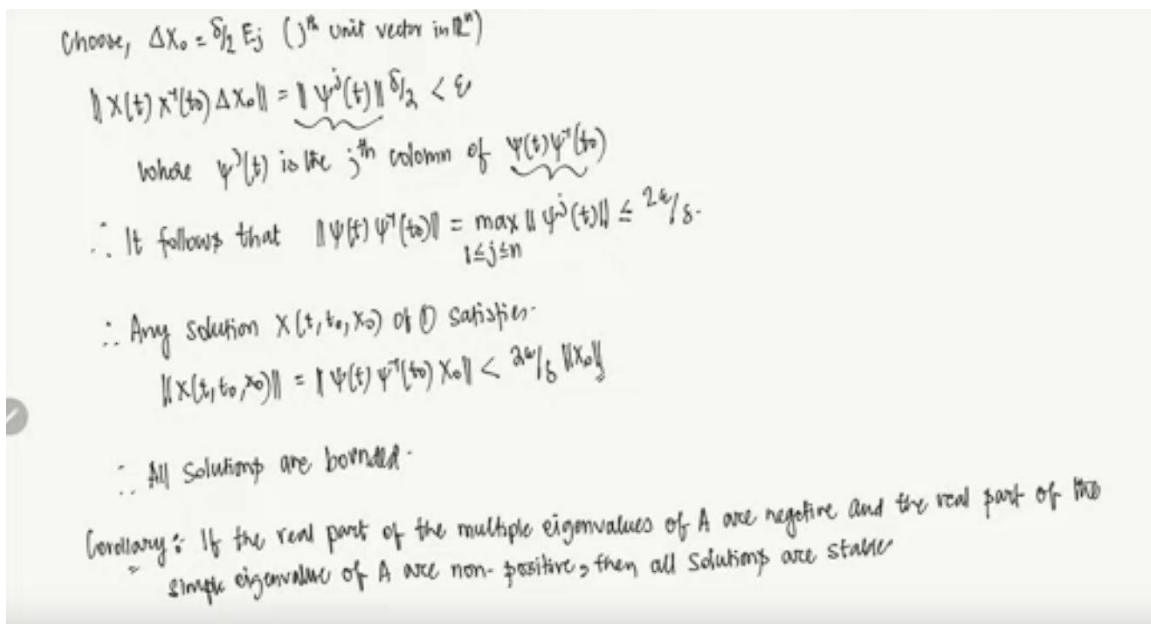 Choose, ΔX₀ = δ/2 Ej (jth unit vector in ℝⁿ)
‖X(t) X⁻¹(t₀) ΔX₀‖ = ‖ψʲ(t)‖ δ/2 < ε
where ψʲ(t) is the jth column of ψ(t)ψ⁻¹(t₀)
∴ It follows that ‖ψ(t) ψ⁻¹(t₀)‖ = max ‖ψʲ(t)‖ ≤ 2ε/δ.
1≤j≤n
∴ Any solution X(t, t₀, x₀) of ① satisfies-
‖X(t, t₀, x₀)‖ = ‖ψ(t) ψ⁻¹(t₀) X₀‖ < 2ε/δ ‖X₀‖
∴ All solutions are bounded.
Corollary: If the real part of the multiple eigenvalues of A are negative and the real part of the
simple eigenvalue of A are non-positive, then all solutions are stable